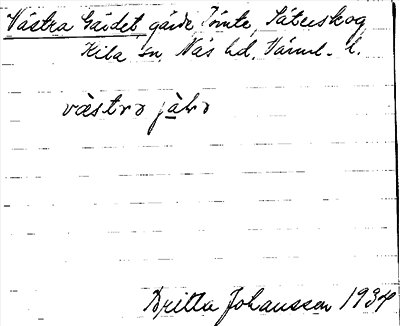 Västra Gärdet, gärde Tomte, Säterskog
Hila sn, Näs hd, Värml. l.
västrə jàḷə
Britta Johansson 1934